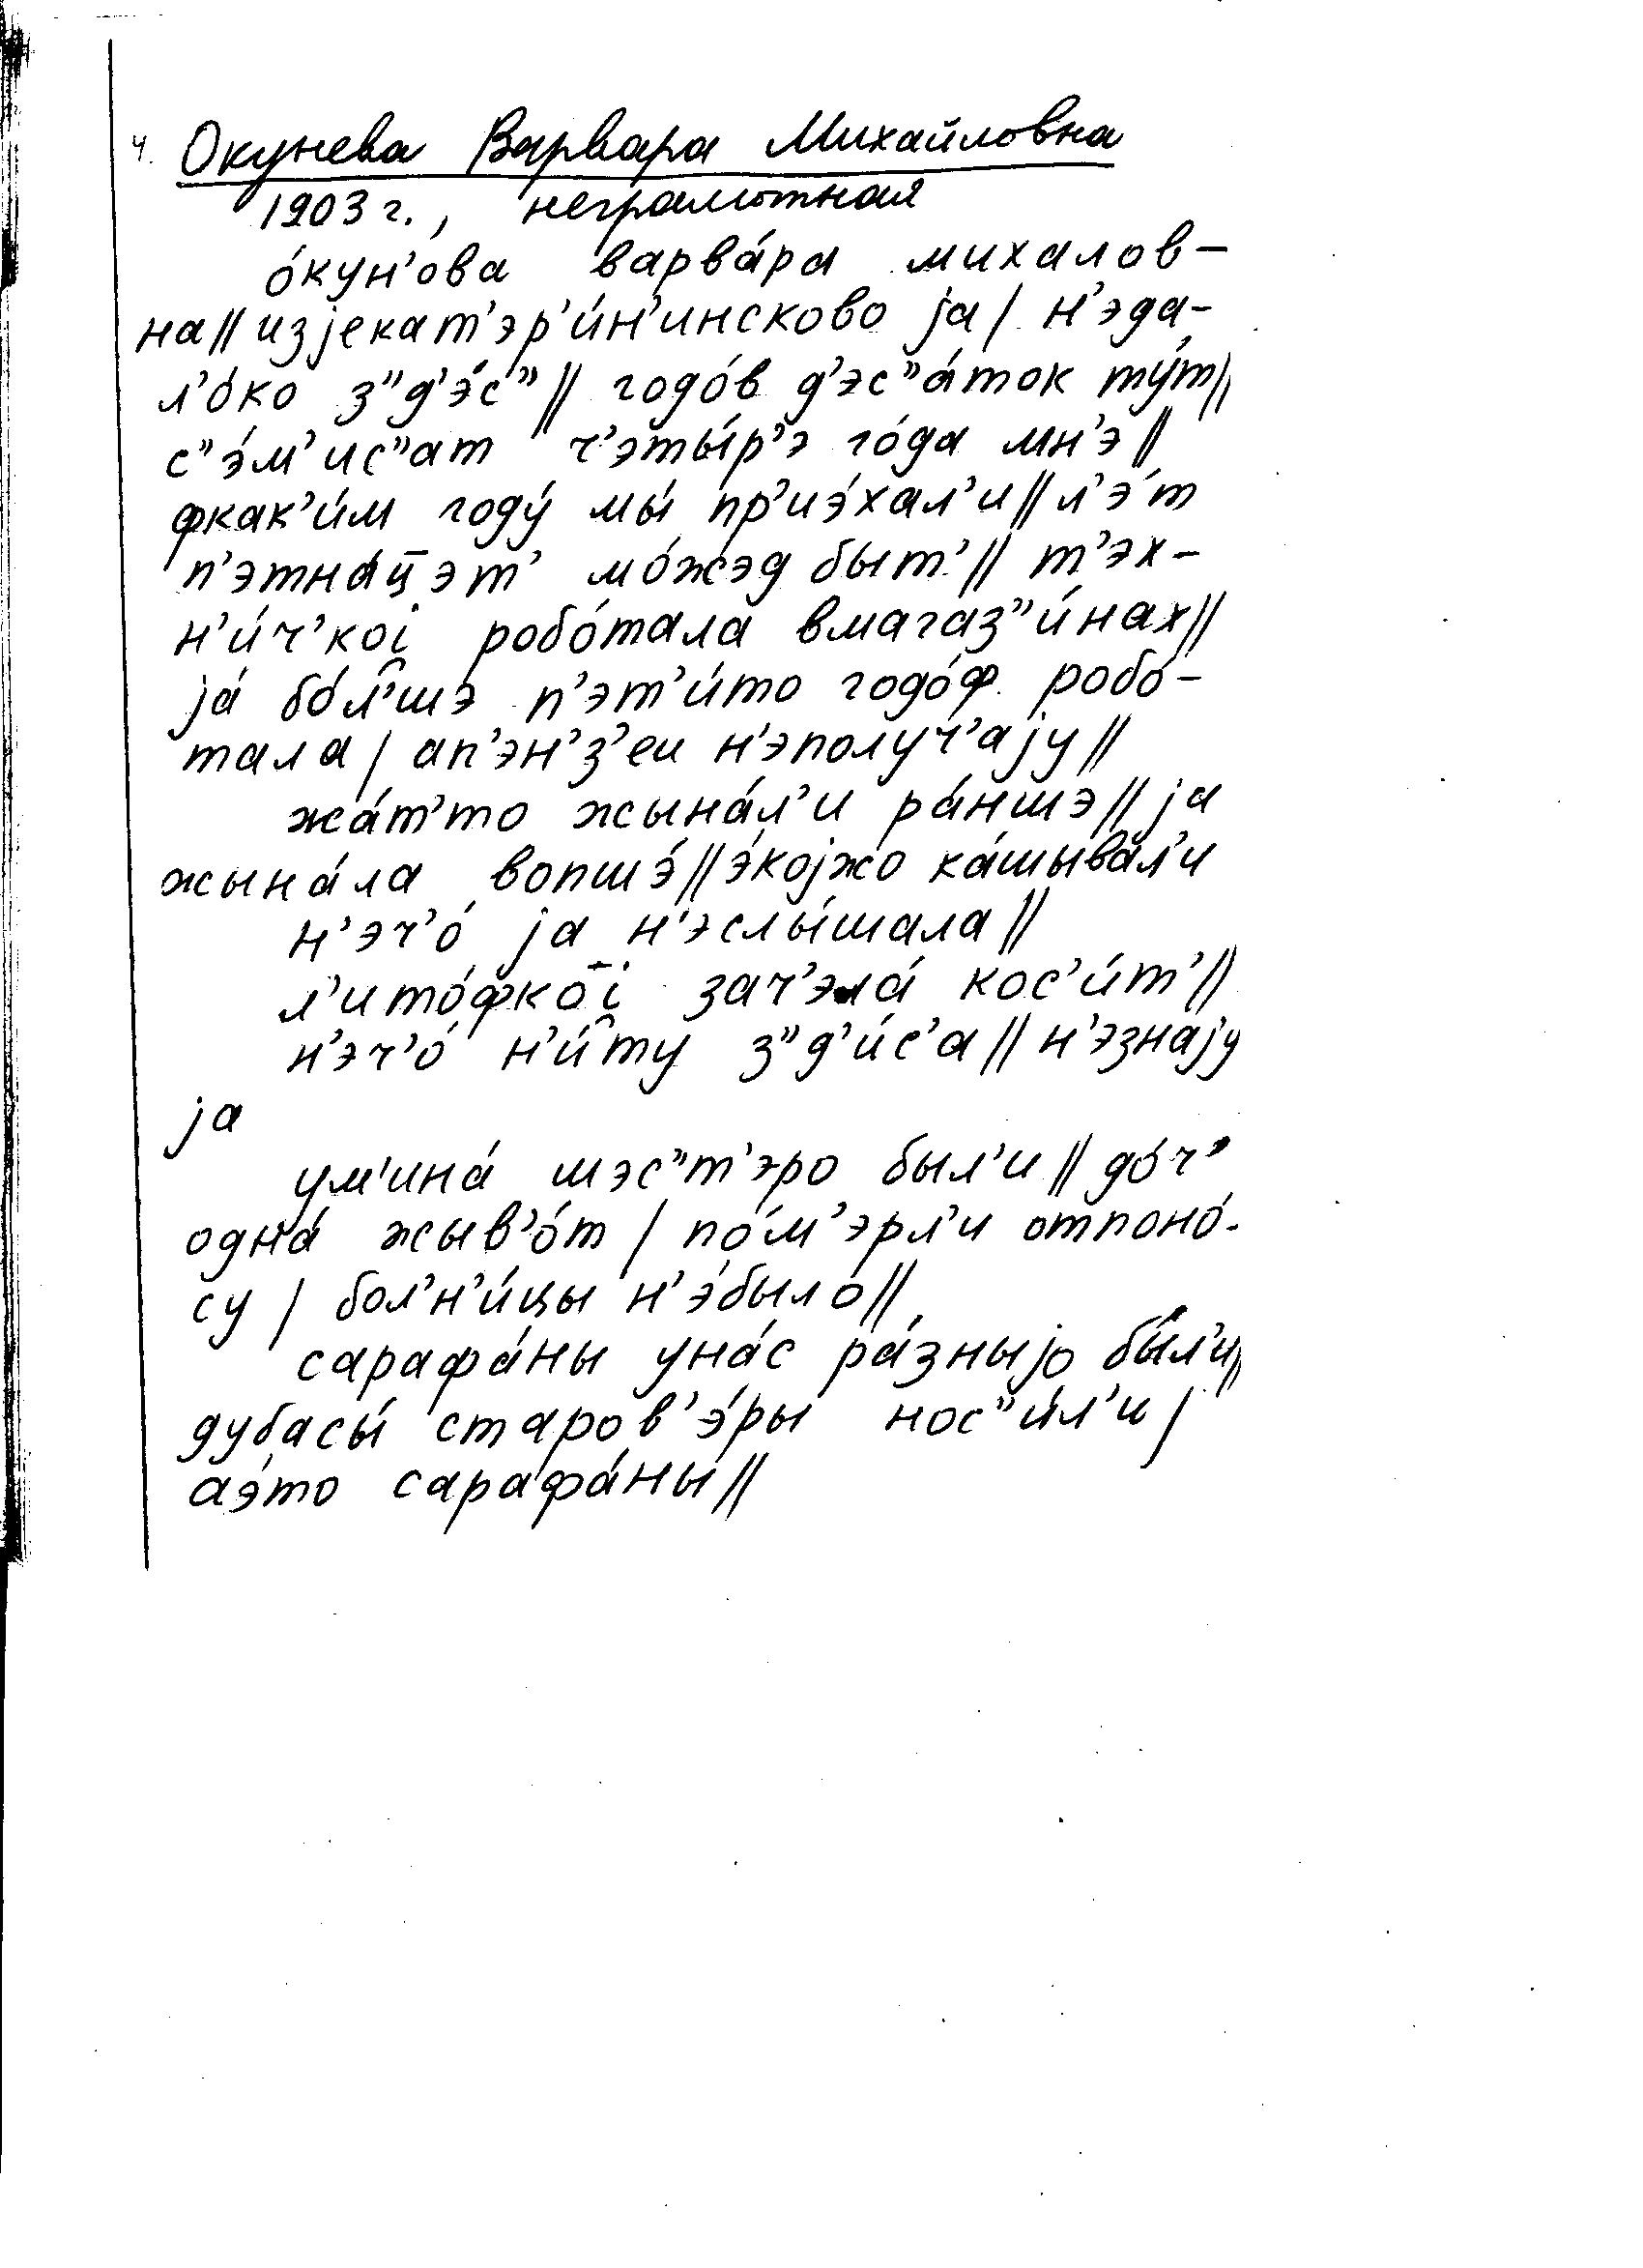 ч. Окунева Варвара Михайловна
1903 г., неграмотная
о́кун'ова варва́ра михалов–
на// изjекат'эр'и́н'инсково jа / н'эда–
л'о́ко з"д'э́с" // годо́в д'эс"а́ток ту́т//
с"э́м'ис"ат ч'эты́р'э го́да мн'э //
фкак'и́м году́ мы́ пр'иэ́хал'и // л'э́т
п'этна́ц̄эт' мо́жэд быт' // т'эх–
н'и́ч'коi робо́тала вмагаз"и́нах//
jа́ бо́л̑'шэ п'эт'и́то годо́ф робо́–
тала / ап'эн'з'еи н'эполуч'аjу //
жа́т'то жына́л'и ра́ншэ // jа
жына́ла вопшэ́ // э́коjжо ка́шывал'и
н'эч'о́ jа н'эслы́шала //
л'ито́фко̄i зач'эла́ кос'и́т' //
н'эч'о́ н'и̑́ту з"д'и́с'а // н'эзнаjу
jа
ум'ина́ шэс"т'эро был'и // до́ч'
одна́ жыв'о́т / по́м'эрл'и отпоно́-
су / бол'н'и́цы н'э́было //
сарафа́ны уна́с ра́зныjо бы́л'и//
дубасы́ старов'э́ры нос"и́л'и /
аэ́то сарафа́ны //